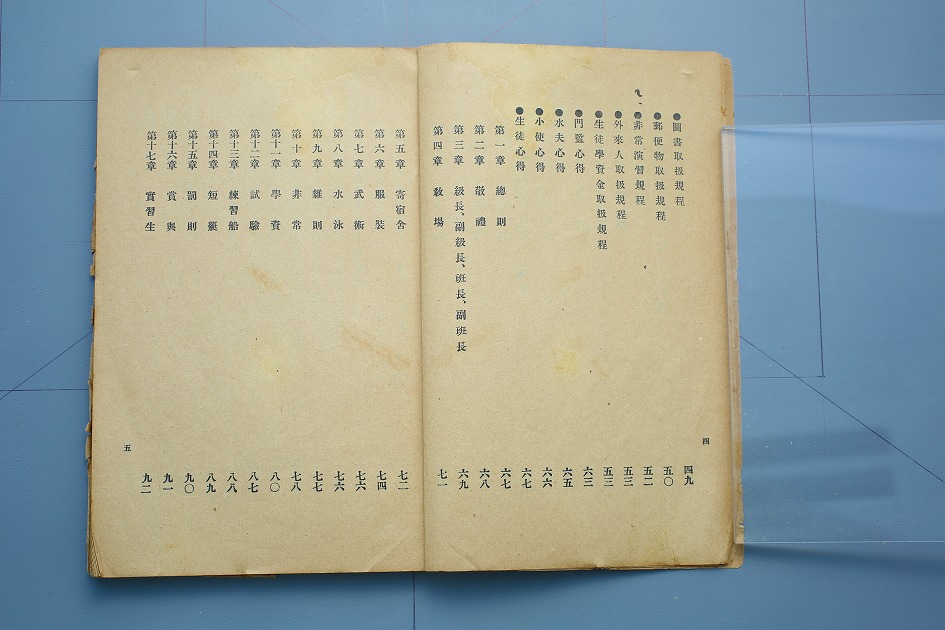 ●圖書取扱規程 四九
●郵便物取扱規程 五〇
●非常演習規程 五二
●外來人取扱規程 五三
●生徒學資金取扱規程 五三
●門監心得 六三
●水夫心得 六五
●小使心得 六六
●生徒心得 六七
第一章 總則 六七
第二章 敬禮 六八
第三章 級長、副級長、班長、副班長 六九
第四章 敎場 七一
四
第五章 寄宿舍 七二
第六章 服裝 七四
第七章 武術 七六
第八章 水泳 七六
第九章 雜則 七七
第十章 非常 七八
第十一章 學資 八〇
第十二章 試驗 八七
第十三章 練習船 八八
第十四章 短艇 八九
第十五章 罰則 九〇
第十六章 賞與 九一
第十七章 實習生 九二
五